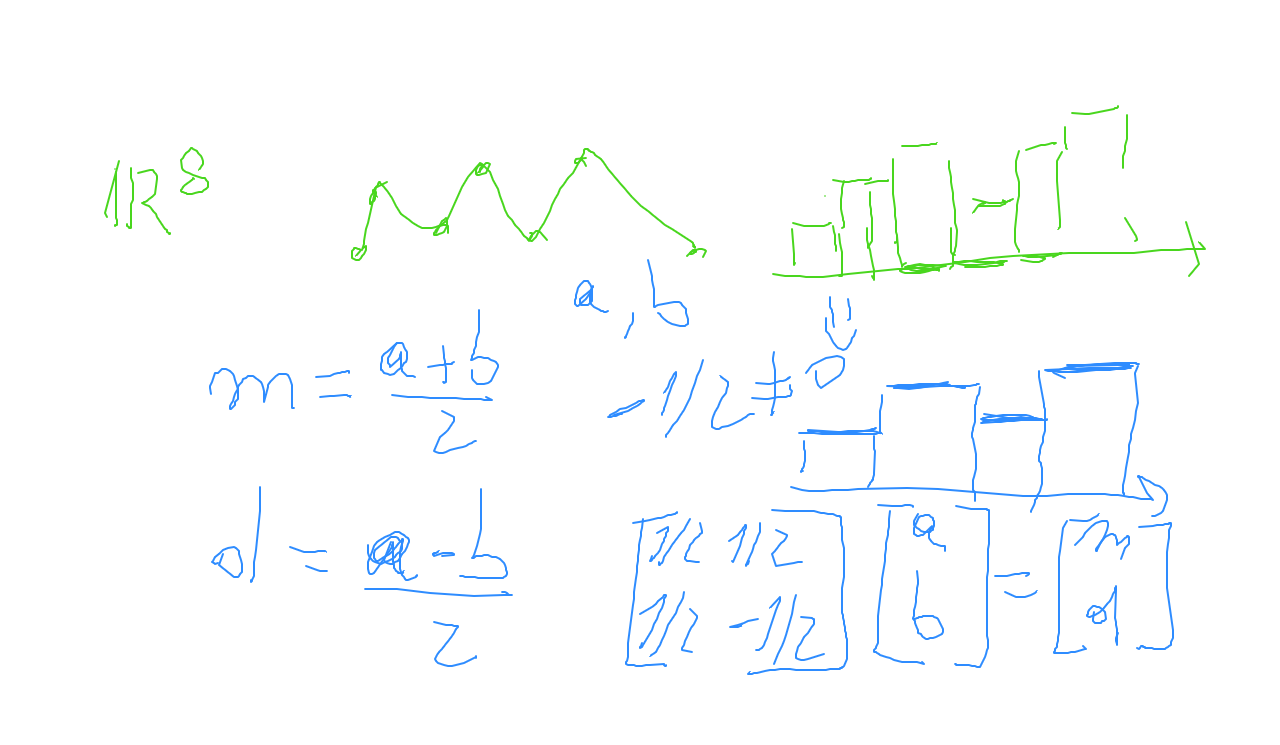 ℝ^8
a, b
m = (a+b)/2
-1/2 ≠ 0
d = (a-b)/2
[1/2 1/2; 1/2 -1/2] [a; b] = [m; d]